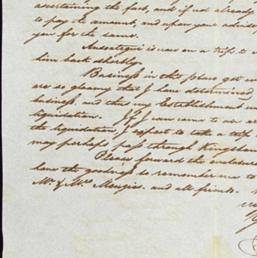 ascertaining the fact, and if not already
to pay the amount, and upon your advis
you for the same.
is now on a trip to
him back shortly.
Business in this place
are so gloomy that I have determined
business, and this my Establishment
liquidation. If I can come to an
the liquidation, I expect to take a trip
may perhaps pass through Kingston
Please forward the enclosure
have the goodness to remember me to
Mr. & Mrs. Menzies, and all friends.